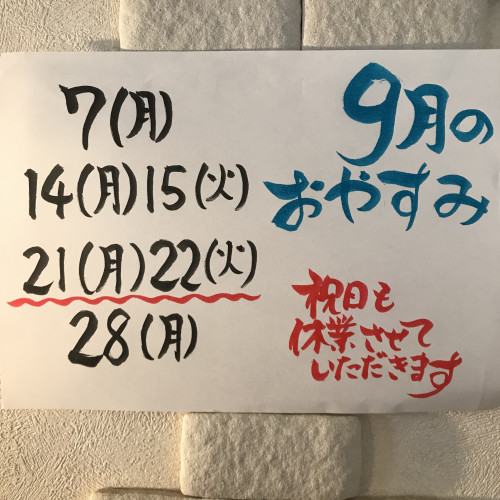 9月の
おやすみ
7(月)
14(月)15(火)
21(月)22(火)
28(月)
祝日も
休業させて
いただきます